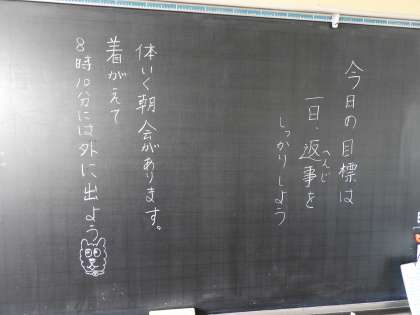 今日の目標は
一日、返事を
へんじ
しっかりしよう
体いく朝会があります。
着がえて
8時10分には外に出よう